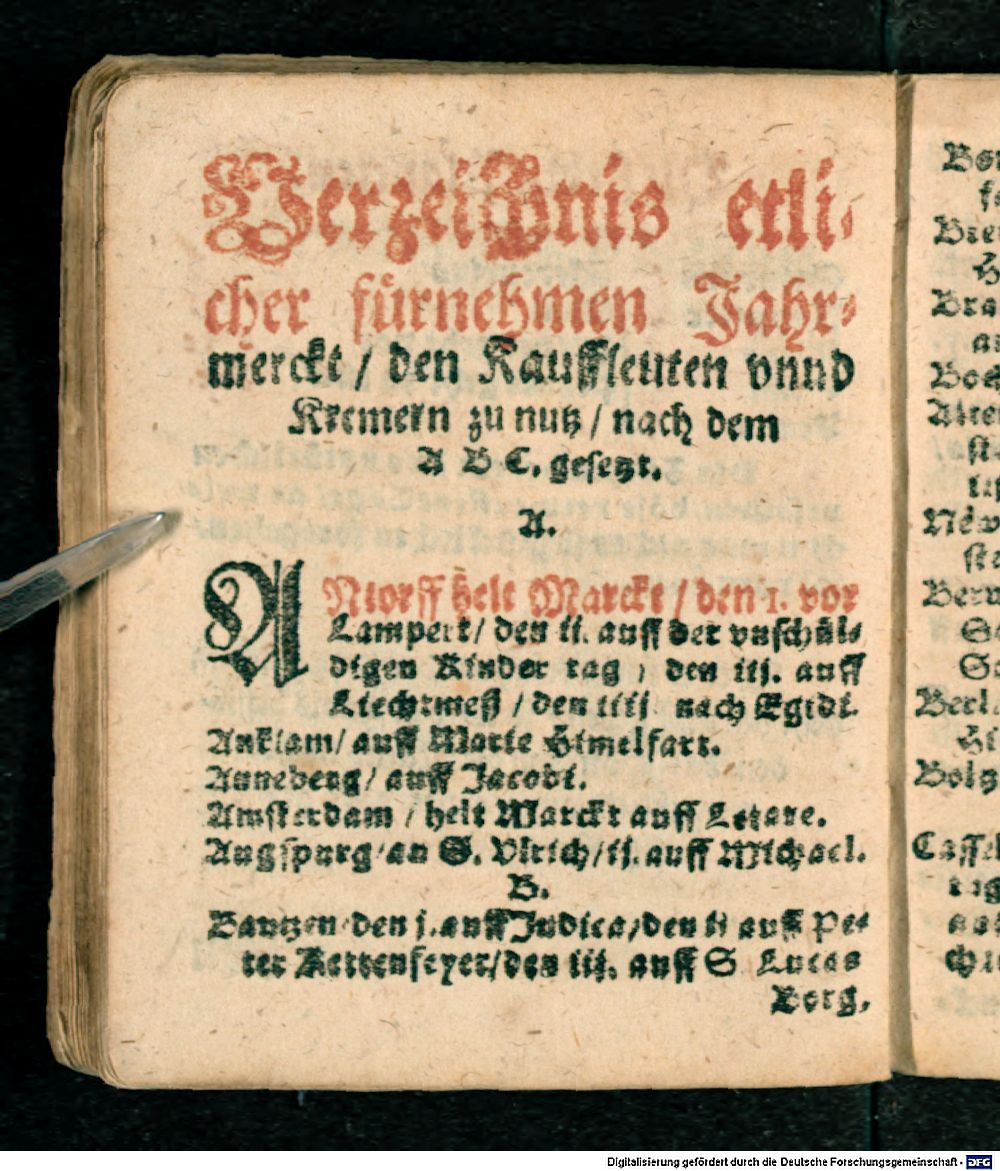 Verzeichnis etli⸗
cher fürnehmen Jahr⸗
merckt / den Kauffleuten vnnd
Kremern zu nutz / nach dem
A B C. gesetzt.
A.
ANtorff helt Marckt / den 1. vor
Lampert / den ii. auff der vnschül⸗
digen Kinder tag / den iij. auff
Liechtmeß / den iiij nach Egidi.
Anklam / auff Marie Himelfart.
Anneberg / auff Jacobi.
Amsterdam / helt Marckt auff Letare.
Augspurg / an S. Vlrich / ij. auff Michael.
B.
Bautzen / den j. auff Judica / den ii auff Pe⸗
ter Kettenfeyer / den iij. auff S Lucas
Borg.
Digitalisierung gefördert durch die Deutsche Forschungsgemeinschaft - DFG